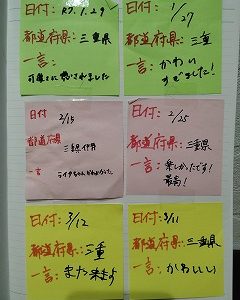 日付: R7.1.29
都道府県: 三重県
一言:
日付: 1/27
都道府県: 三重
一言: かわい
すぎました!
日付 2/15
都道府県 三重県伊勢
一言
日付: 2/25
都道府県: 三重県
一言: 楽しかったです!
最高!
日付: 3/12
都道府県: 三重
一言: また来よう
日付: 3/11
都道府県: 三重県
一言: かわいい